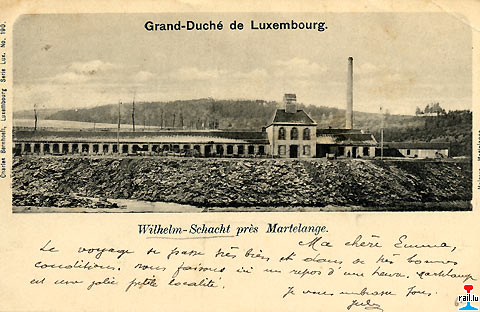 Grand-Duché de Luxembourg.
Charles Bernhoeft, Luxembourg Serie Lux. No. 190.
Wilhelm-Schacht près Martelange.
Ma chère Emma,
Le voyage se passe très bien et dans de très bonnes
conditions. nous faisons ici un repos d'une heure. Martelange
est une jolie petite localité.
Je vous embrasse Tous.
Jules
rail.lu